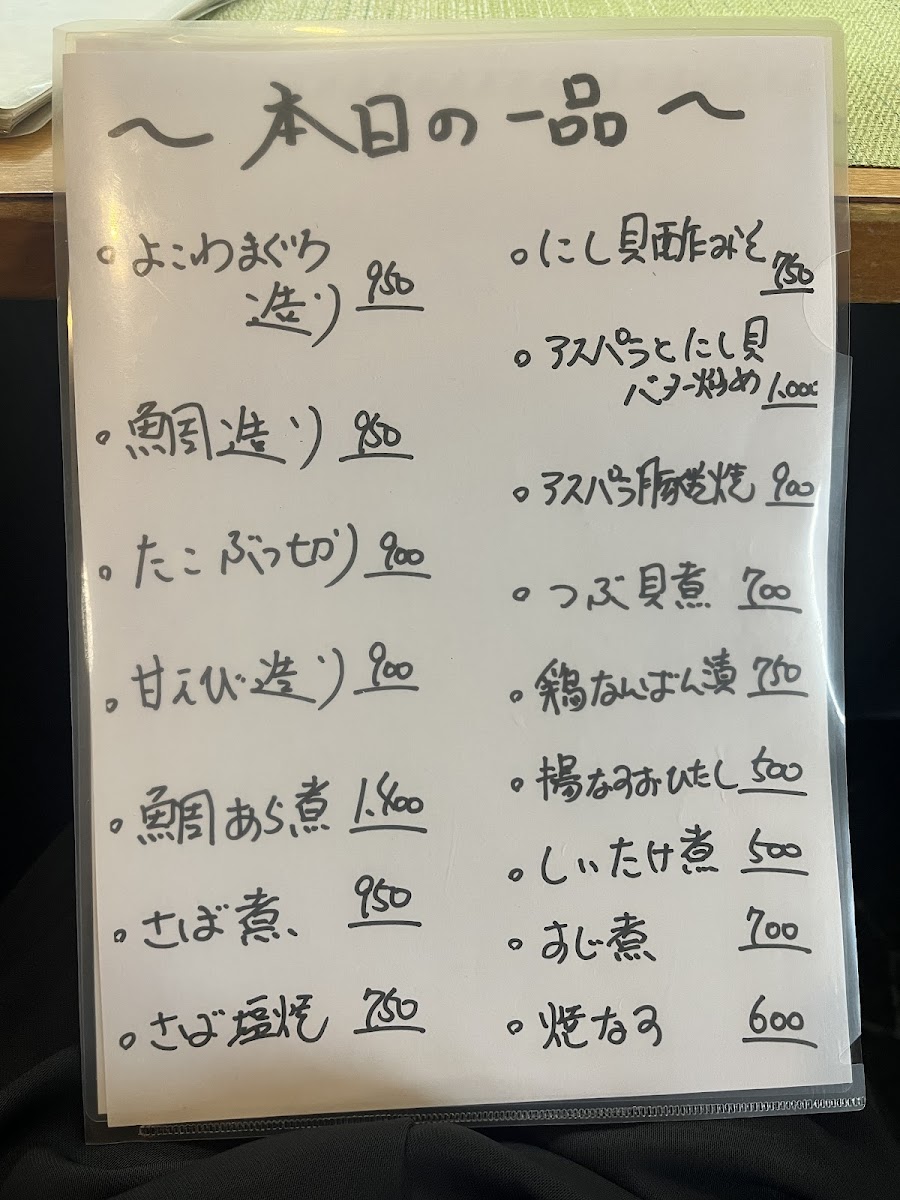 ～ 本日の一品 ～
。よこわまぐろ
造り 950
。鯛造り 950
。たこぶつ切り 900
。甘えび造り 900
。鯛あら煮 1.400
。さば煮、 950
。さば塩焼 750
。にし貝酢みそ 750
。アスパラとにし貝
バター炒め 1.000
。アスパラ豚巻焼 900
。つぶ貝煮 700
。鶏なんばん漬 750
。揚なすおひたし 500
。しいたけ煮 500
。すじ煮 700
。焼なす 600